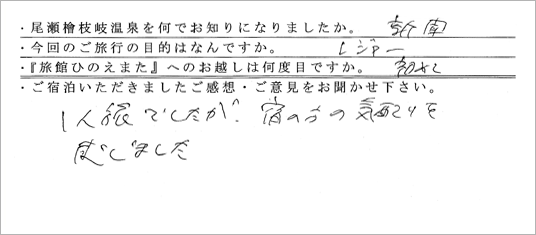 ・尾瀬檜枝岐温泉を何でお知りになりましたか。 新聞
・今回のご旅行の目的はなんですか。 レジャー
・『旅館ひのえまた』へのお越しは何度目ですか。 初めて
・ご宿泊いただきましたご感想・ご意見をお聞かせ下さい。
1人旅でしたが、宿の方の気配りを
感じました